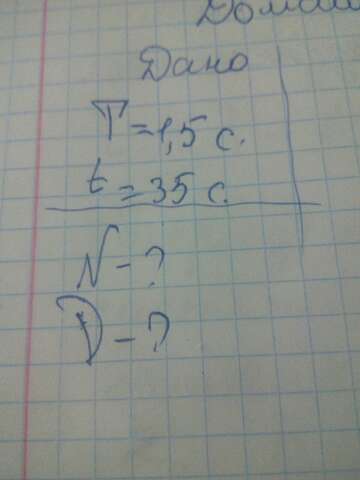 Дома
Дано
T = 1,5 с.
t = 35 с.
N - ?
ν - ?